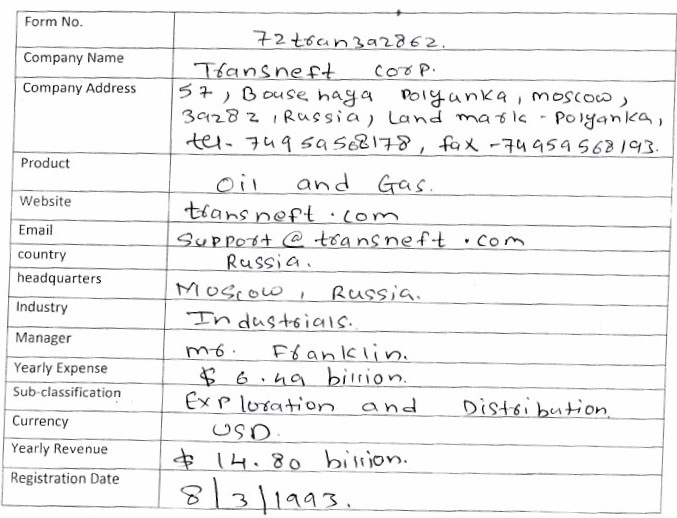 Form No.
72tran3a2862.
Company Name
Transneft Corp.
Company Address
57, Bousehaya Polyanka, moscow,
3a282, Russia, Land mark - Polyanka,
tel- 74959568178, fax -74959568193.
Product
Oil and Gas.
Website
transneft.com
Email
support@transneft.com
country
Russia.
headquarters
Moscow, Russia.
Industry
Industrials.
Manager
mr. Franklin.
Yearly Expense
$ 6.49 billion.
Sub-classification
Exploration and Distribution.
Currency
USD.
Yearly Revenue
$ 14.80 billion.
Registration Date
8/3/1993.